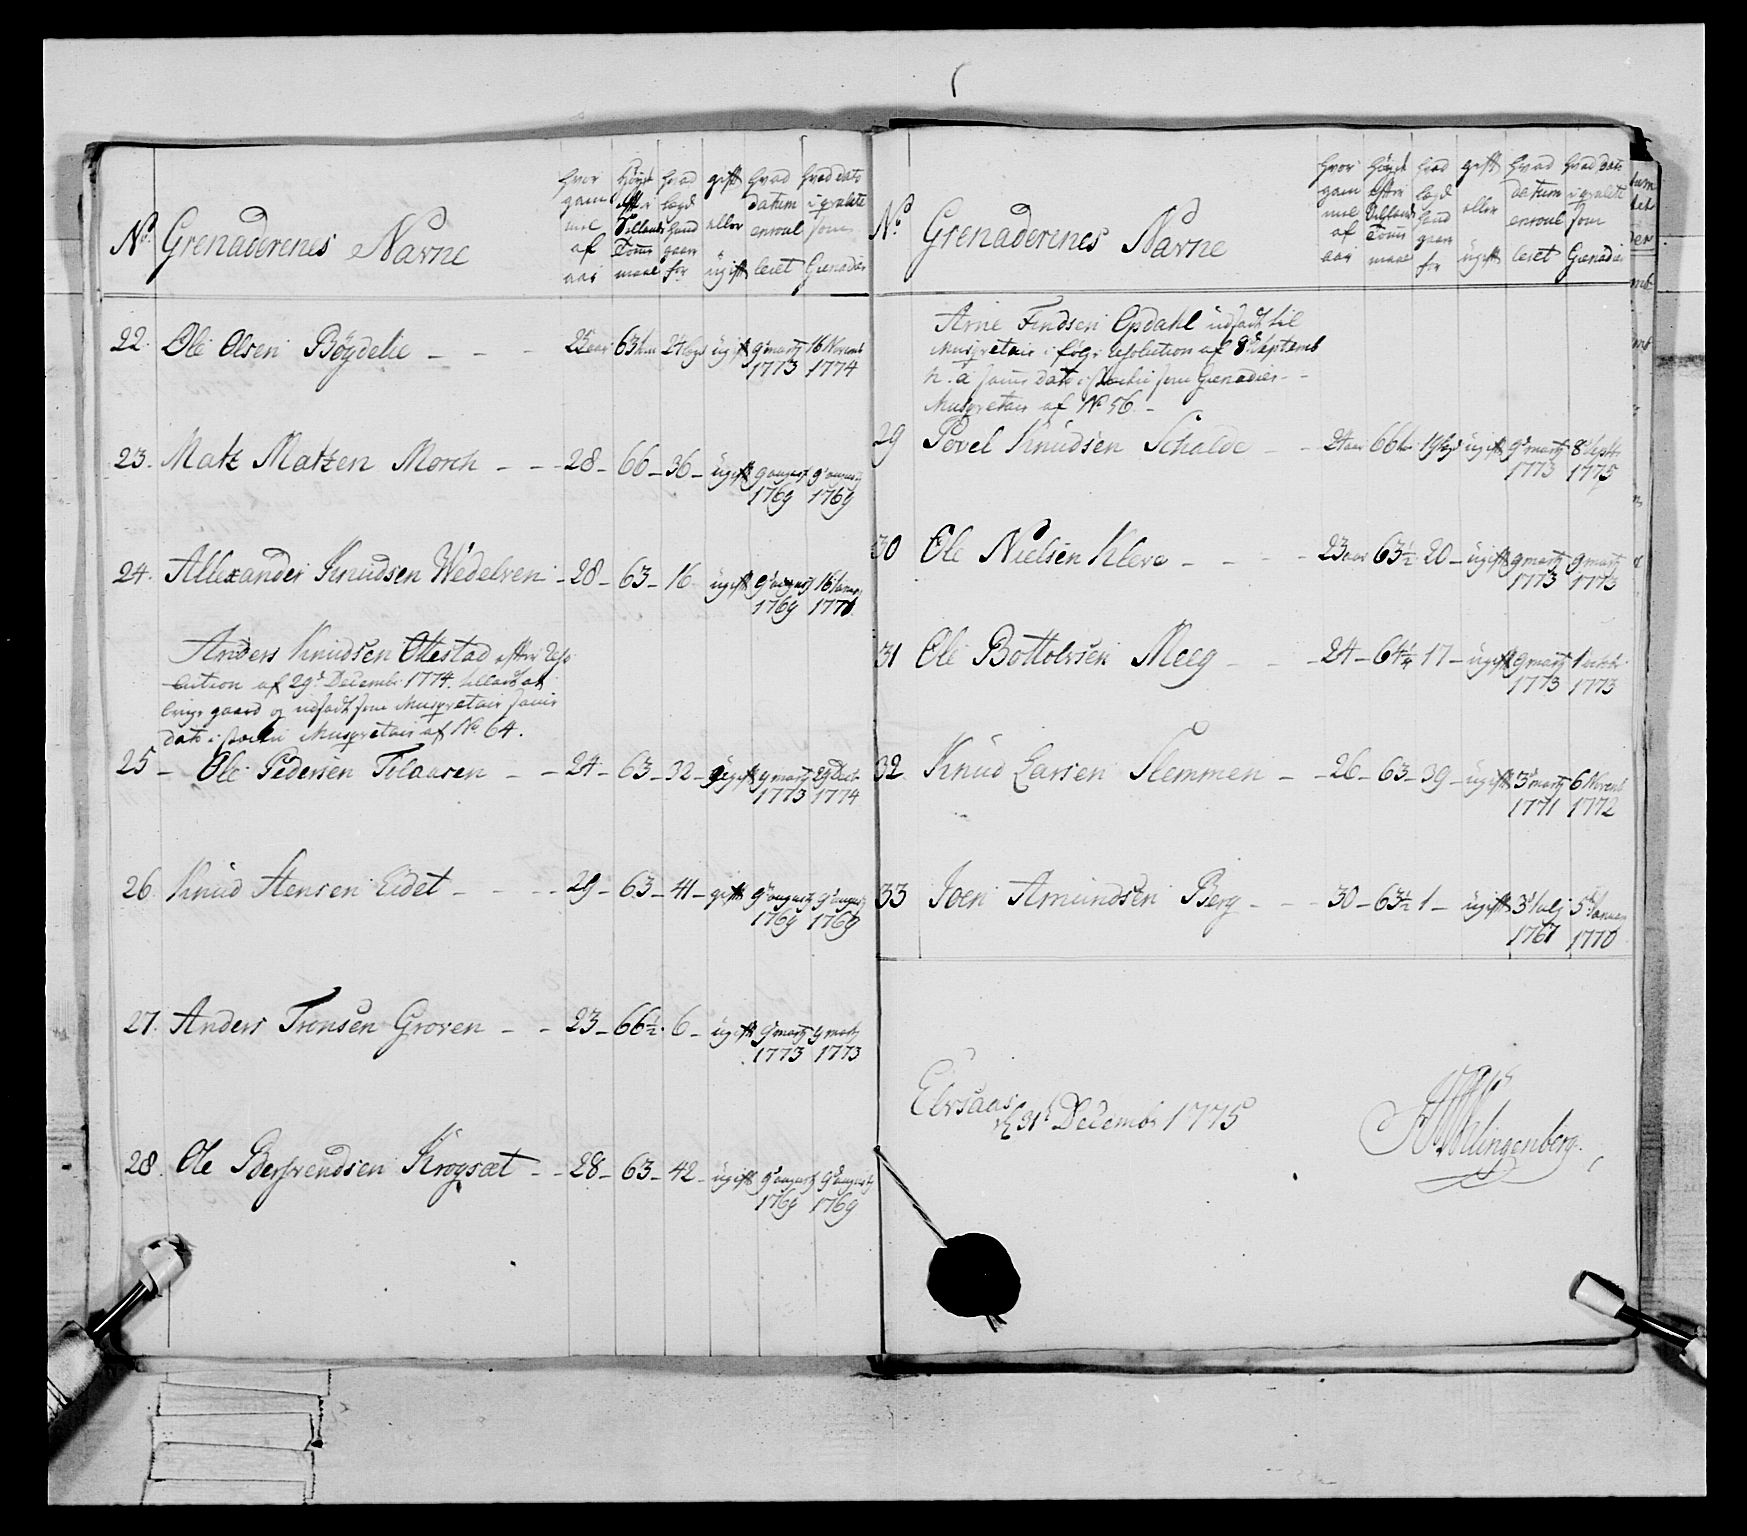 No. Grenaderenes Navne
hvor gam mel af aar
Høyde efter Sellands Tomme maal
hvad lægd hand gaar for
gift eller ugift
hvad datum enroul leret
hvad dato som Grenadier
22. Ole Olsen Bøgdelie - - - 23 aar 63 24 ugift 9 marty 1773 16 Novemb 1774
23. Matz Matzen Morch - - - 28 - 66 - 36 - ugift 9 august 1769 9 august 1769
24. Allexander Knudsen Wedelven - 28 - 63 - 16 ugift 9 august 1769 16 Januar
Anders Knudsen Ollestad efter Reso
lution af 29d Decembr: 1774
gaard og udsadt som Musqvetair samme
dato Musqvetair af No 64.
25 - Ole Pedersen Tolaasen - - 24 - 63 - 32 - ugift 9 marty 1773 29 Decb 1774
26. Knud Stensen Eidet - - - - 29 - 63 - 41 - gift 9 august 1769 9 august 1769
27. Anders Tronsen Groven - - 23 - 66½ 6 - ugift 9 marty 1773 9 marty 1773
28. Ole Krogsæt - - 28 - 63 - 42 - ugift 9 august 1769 9 august 1769
No. Grenaderenes Navne
hvor gam mel af aar
Høyde efter Sellands Tomme maal
hvad lægd hand gaar for
gift eller ugift
hvad datum enroul leret
hvad dato som Grenadier
Arne Findsen Opdahl udsadt til
Musqvetair i følge Resolution af 8d Septemb
h. a. samme dato som Grenadier - -
Musqvetair af No 56 -
29 Povel Knudsen Schalde - - 24 aar 66 19 ugift 9 marty 1773 8 Septb 1775
30 Ole Nielsen Kleve - - - - 23 aar 63½ 20 - ugift 9 marty 1773 9 marty 1773
31 Ole Bottolvsen Meeg - - - 24 - 64¼ 17 - ugift 9 marty 1773 1 1773
32 Knud Larsen Slemmen - - 26 - 63 - 39 - ugift 3 marty 1771 6 Novemb 1772
33 Joen Amundsen Berg - - - 30 - 63½ 1 - ugift 3 July 1767 5 Januar 1770
d 31d Decembr 1775
Klingenberg.